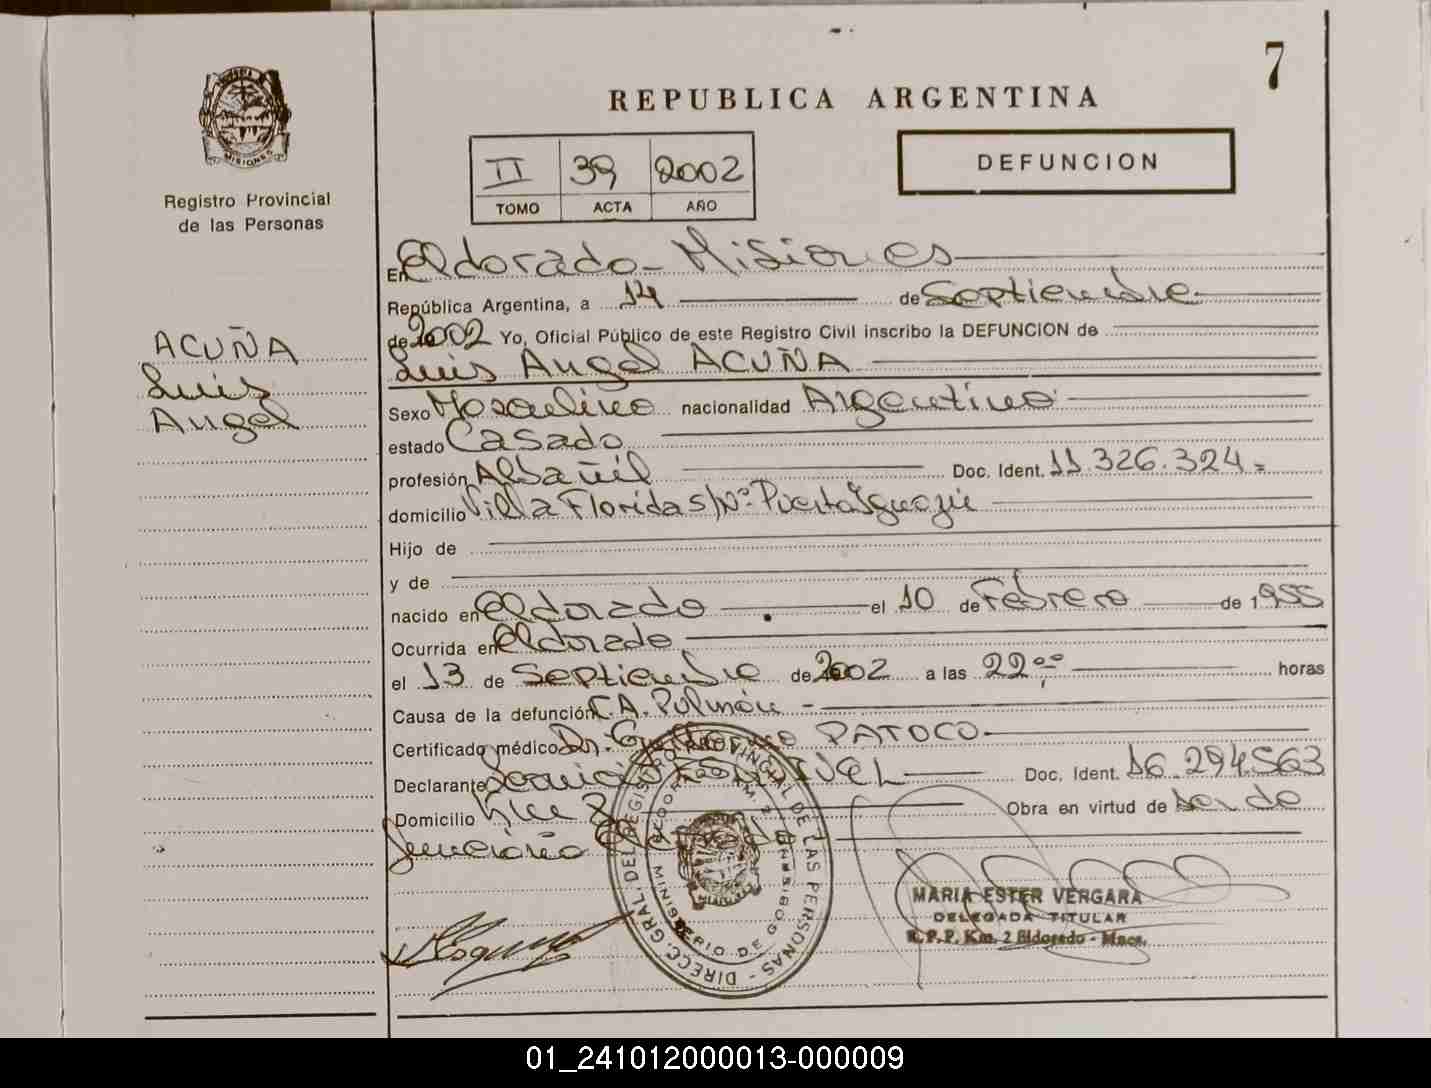 7
REPUBLICA ARGENTINA
MISIONES
Registro Provincial
de las Personas
II 39 2002
TOMO ACTA AÑO
DEFUNCION
ACUÑA
Luis
Angel
En Eldorado - Misiones
República Argentina, a 14 de Septiembre
de 2002 Yo, Oficial Público de este Registro Civil inscribo la DEFUNCION de
Luis Angel ACUÑA
Sexo Masculino nacionalidad Argentino
estado Casado
profesión Albañil Doc. Ident. 11.326.324.=
domicilio Villa Florida S/Nº- Puerto Iguazú
Hijo de
y de
nacido en Eldorado el 10 de Febrero de 1955
Ocurrida en Eldorado
el 13 de Septiembre de 2002 a las 22:00 horas
Causa de la defunción CA. Pulmón -
Certificado médico Dr. PATOCO
Declarante Doc. Ident. 16.294563
Domicilio Km 2 Obra en virtud de
DIRECC. GRAL. DEL REGISTRO PROVINCIAL DE LAS PERSONAS
ELDORADO KM. 2
MINISTERIO DE GOBIERNO
MARIA ESTER VERGARA
DELEGADA TITULAR
R.P.P. Km. 2 Eldorado - Mnes.
01_241012000013-000009